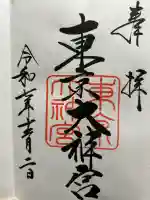 奉拝
東京大神宮
東京
大神宮
令和元年十一月二日